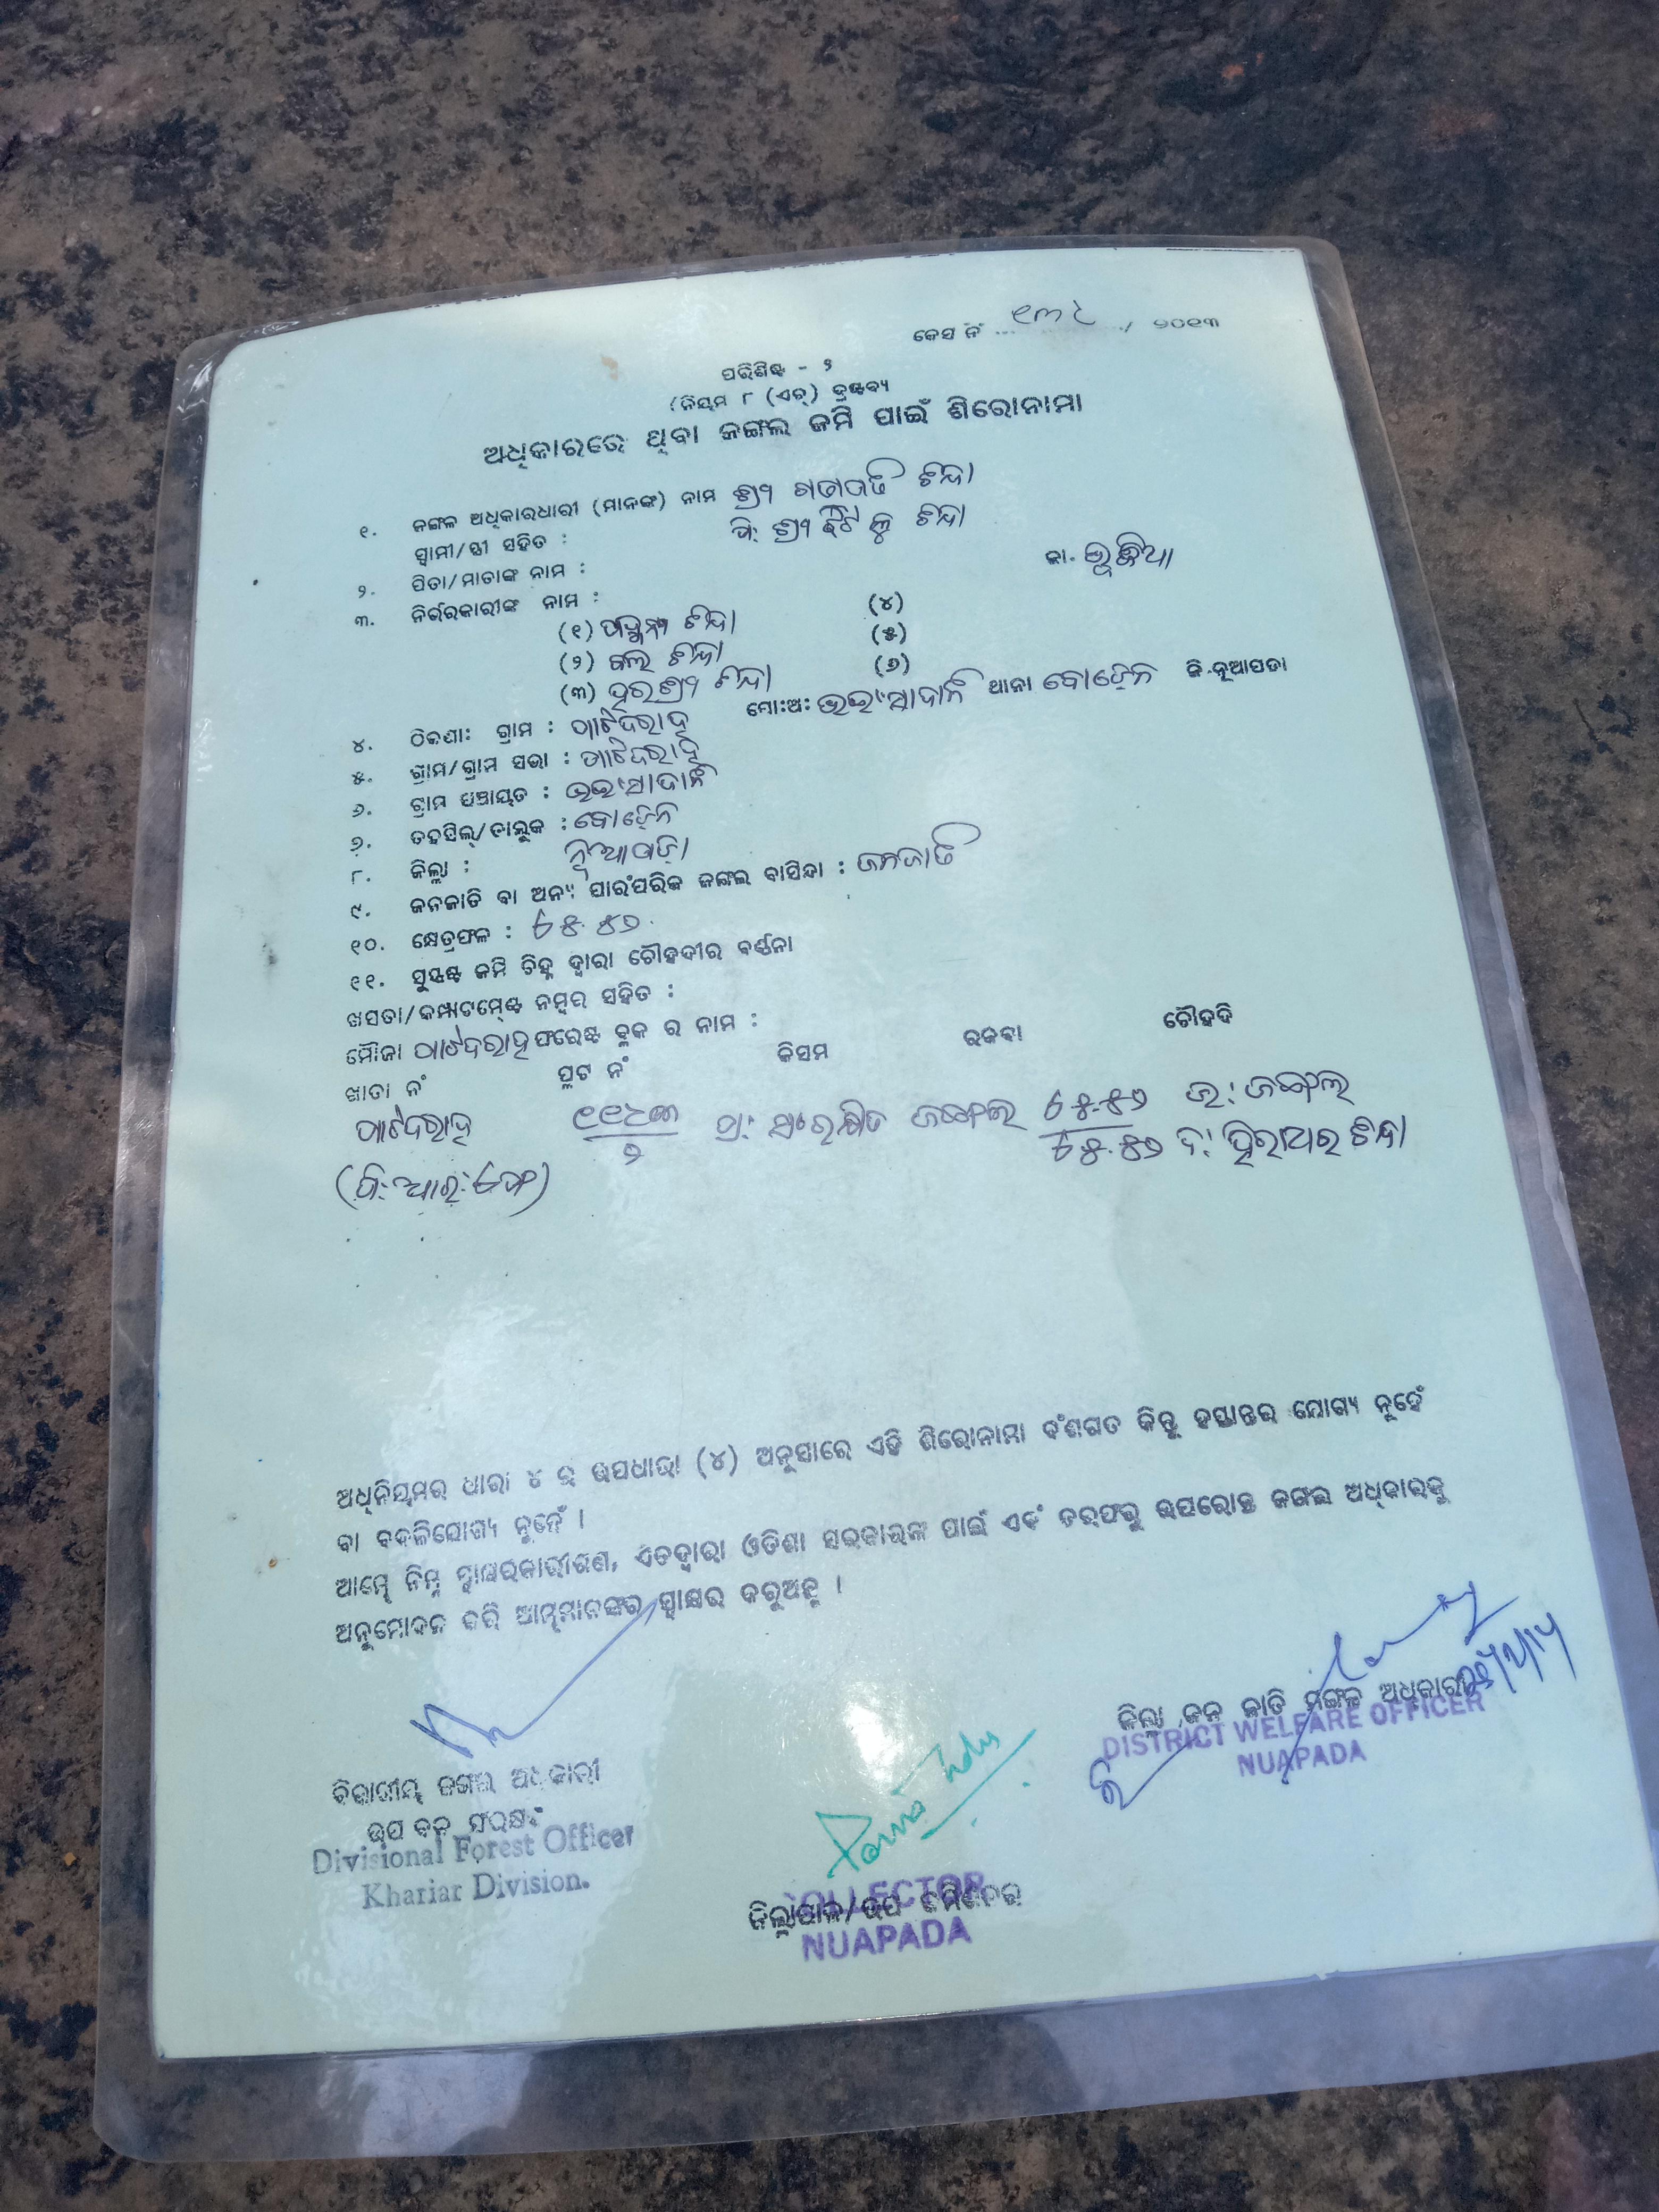 କେସ ନଂ ... ୧୩୪ ... / ୨୦୧୩
ପରିଶିଷ୍ଟ - ୨
(ନିୟମ ୮ (ଏଚ୍) ଦ୍ରଷ୍ଟବ୍ୟ
ଅଧିକାରରେ ଥିବା ଜଙ୍ଗଲ ଜମି ପାଇଁ ଶିରୋନାମା
୧. ଜଙ୍ଗଲ ଅଧିକାରଧାରୀ (ମାନଙ୍କ) ନାମ ଶ୍ରୀ ଚିନ୍ଦା
ସ୍ୱାମୀ/ସ୍ତ୍ରୀ ସହିତ : ପି: ଶ୍ରୀ ଚିନ୍ଦା
୨. ପିତା/ମାତାଙ୍କ ନାମ : ଜା. ଭୁଞ୍ଜିଆ
୩. ନିର୍ଭରକାରୀଙ୍କ ନାମ :
(୧) ଚିନ୍ଦା (୪)
(୨) ଚିନ୍ଦା (୫)
(୩) ଚିନ୍ଦା (୬)
୪. ଠିକଣା: ଗ୍ରାମ : ପାଟଦରାହ ମୋ:ଅ: ଭଇଂସାଦାନି ଥାନା ବୋଡ଼େନ ଜି.ନୂଆପଡା
୫. ଗ୍ରାମ/ଗ୍ରାମ ସଭା : ପାଟଦରାହ
୬. ଗ୍ରାମ ପଞ୍ଚାୟତ : ଭଇଂସାଦାନି
୭. ତହସିଲ୍/ତାଲୁକ : ବୋଡ଼େନ
୮. ଜିଲ୍ଲା : ନୂଆପଡ଼ା
୯. ଜନଜାତି ବା ଅନ୍ୟ ପାରଂପରିକ ଜଙ୍ଗଲ ବାସିନ୍ଦା : ଜନଜାତି
୧୦. କ୍ଷେତ୍ରଫଳ : ୫୨
୧୧. ସୁସ୍ପଷ୍ଟ ଜମି ଚିହ୍ନ ଦ୍ୱାରା ଚୌହଦୀର ବର୍ଣ୍ଣନା
ଖସଡା/କମ୍ପାର୍ଟମେଣ୍ଟ ନମ୍ବର ସହିତ :
ମୌଜା ପାଟଦରାହ ଫରେଷ୍ଟ ବ୍ଲକ ର ନାମ :
ଖାତା ନଂ ପ୍ଲଟ ନଂ କିସମ ରକବା ଚୌହଦି
ପାଟଦରାହ ପ୍ର: ସଂରକ୍ଷିତ ଜଙ୍ଗଲ ଉ: ଜଙ୍ଗଲ
୨ ଦ: ଚିନ୍ଦା
(ପି: ଆର: ଏଫ)
ଅଧିନିୟମର ଧାରା ୪ ର ଉପଧାରା (୪) ଅନୁସାରେ ଏହି ଶିରୋନାମା ବଂଶଗତ କିନ୍ତୁ ହସ୍ତାନ୍ତର ଯୋଗ୍ୟ ନୁହେଁ
ବା ବଦଳିଯୋଗ୍ୟ ନୁହେଁ ।
ଆମ୍ଭେ ନିମ୍ନ ସ୍ୱାକ୍ଷରକାରୀଗଣ, ଏତଦ୍ୱାରା ଓଡିଶା ସରକାରଙ୍କ ପାଇଁ ଏବଂ ତରଫରୁ ଉପରୋକ୍ତ ଜଙ୍ଗଲ ଅଧିକାରକୁ
ଅନୁମୋଦନ କରି ଆମ୍ଭମାନଙ୍କର ସ୍ୱାକ୍ଷର କରୁଅଛୁ ।
ଜିଲ୍ଲା ଜନ ଜାତି ମଙ୍ଗଳ ଅଧିକାରୀ
DISTRICT WELFARE OFFICER
NUAPADA
ବିଭାଗୀୟ ଜଙ୍ଗଲ ଅଧିକାରୀ
ଉପ ବନ ସଂରକ୍ଷକ
Divisional Forest Officer
Khariar Division.
ଜିଲ୍ଲାପାଳ/ଉପ କମିଶନର
COLLECTOR
NUAPADA